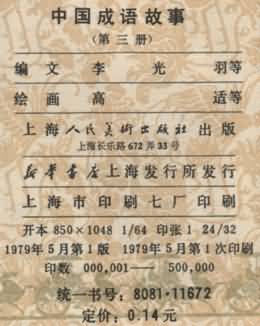 中国成语故事
(第三册)
编文 李光羽等
绘画 高适等
上海人民美術出版社出版
上海长乐路672弄33号
新华書店上海发行所发行
上海市印刷七厂印刷
开本 850×1048 1/64 印张 1 24/32
1979年5月第1版 1979年5月第1次印刷
印数 000,001—— 500,000
统一书号: 8081·11672
定价: 0.14元